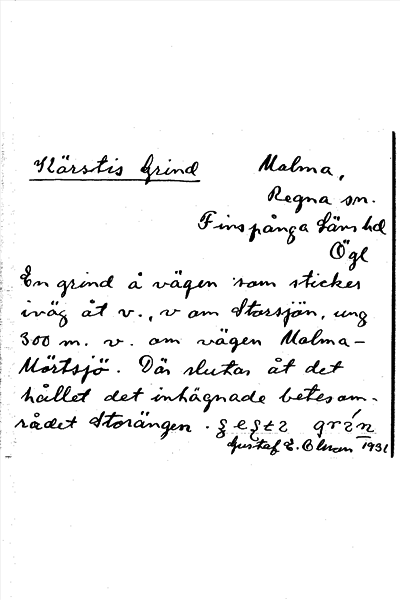 Kärstis Grind
Malma,
Regna sn.
Finspånga läns hd
Ögl
En grind å vägen som sticker
iväg åt v., v om Storsjön, ung
300 m. v. om vägen Malma-
Mörtsjö. Där slutar åt det
hållet det inhägnade betesom-
rådet Storängen.
Gustaf E. Olsson 1931